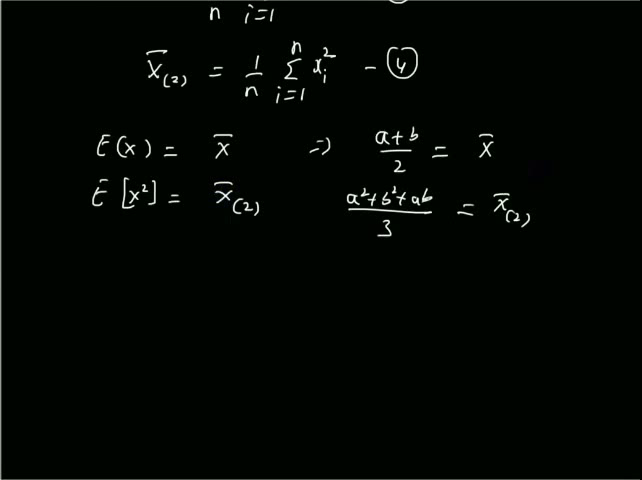 n i=1
x̄(2) = 1/n Σ_{i=1}^{n} x_i² - (4)
E(x) = x̄ ⇒ (a+b)/2 = x̄
E[x²] = x̄(2) (a²+b²+ab)/3 = x̄(2)